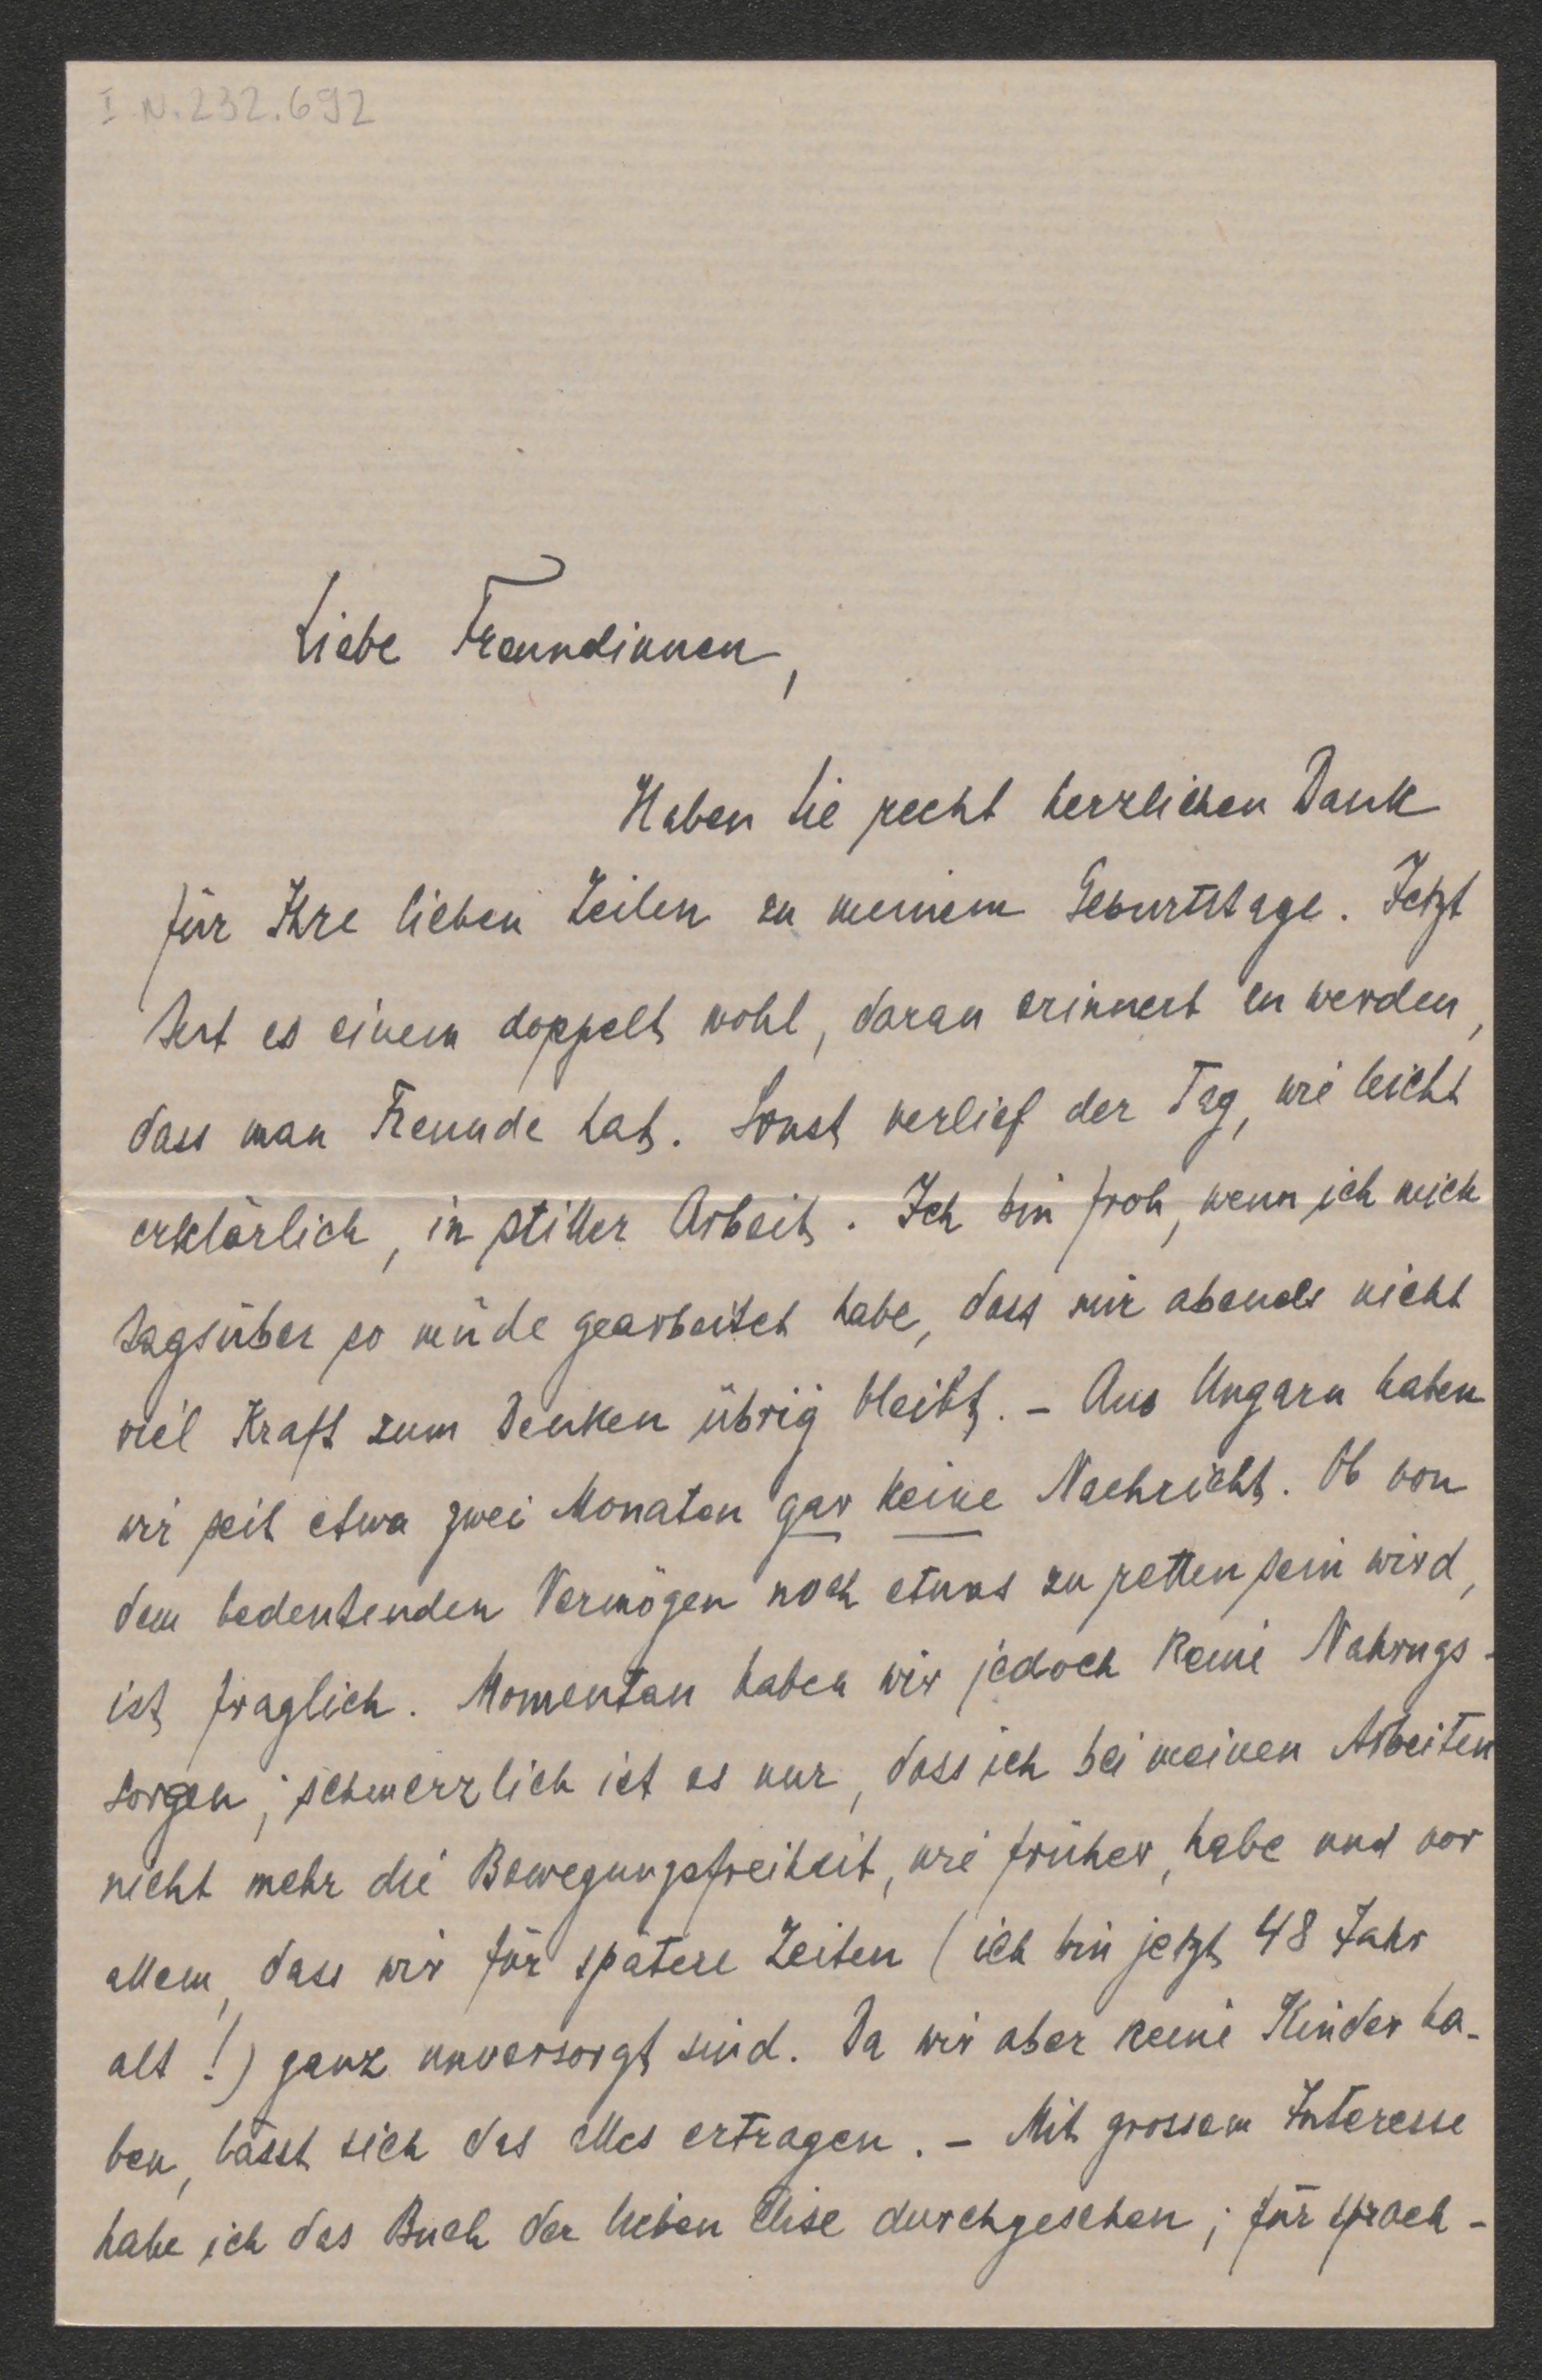 I.N.232.692
Liebe Freundinnen,
Haben Sie recht herzlichen Dank
für Ihre lieben Zeilen zu meinem Geburtstage. Jetzt
tut es einem doppelt wohl, daran erinnert zu werden,
dass man Freunde hat. Sonst verlief der Tag, wie leicht
erklärlich, in stiller Arbeit. Ich bin froh, wenn ich mich
tagsüber so müde gearbeitet habe, dass mir abends nicht
viel Kraft zum Denken übrig bleibt. - Aus Ungarn haben
wir seit etwa zwei Monaten gar keine Nachricht. Ob von
dem bedeutenden Vermögen noch etwas zu retten sein wird,
ist fraglich. Momentan haben wir jedoch keine Nahrngs-
sorgen; schmerzlich ist es nur, dass ich bei meinen Arbeiten
nicht mehr die Bewegungsfreiheit, wie früher, habe und vor
allem, dass wir für spätere Zeiten (ich bin jetzt 48 Jahr
alt!) ganz unversorgt sind. Da wir aber keine Kinder ha-
ben, lässt sich das alles ertragen. - Mit grossem Interesse
habe ich das Buch der lieben Elise durchgesehen; für sprach-